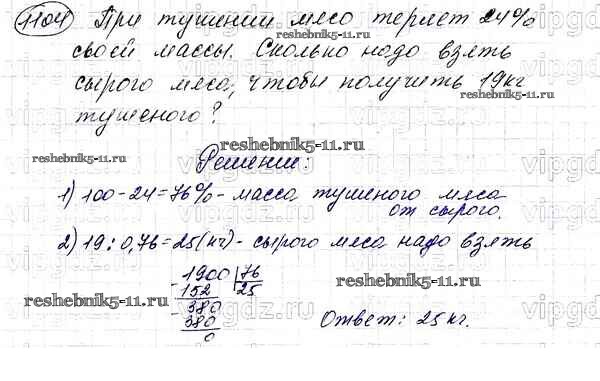 1104 При тушении мясо теряет 24%
своей массы. Сколько надо взять
сырого мяса, чтобы получить 19кг
тушеного?
Решение:
1) 100-24=76% - масса тушеного мяса
от сырого.
2) 19:0,76=25(кг)- сырого мяса надо взять
1900 76
- 152 25
380
- 380
0
Ответ: 25 кг.
reshebnik5-11.ru
reshebnik5-11.ru
reshebnik5-11.ru
reshebnik5-11.ru
reshebnik5-11.ru
vipgdz.ru